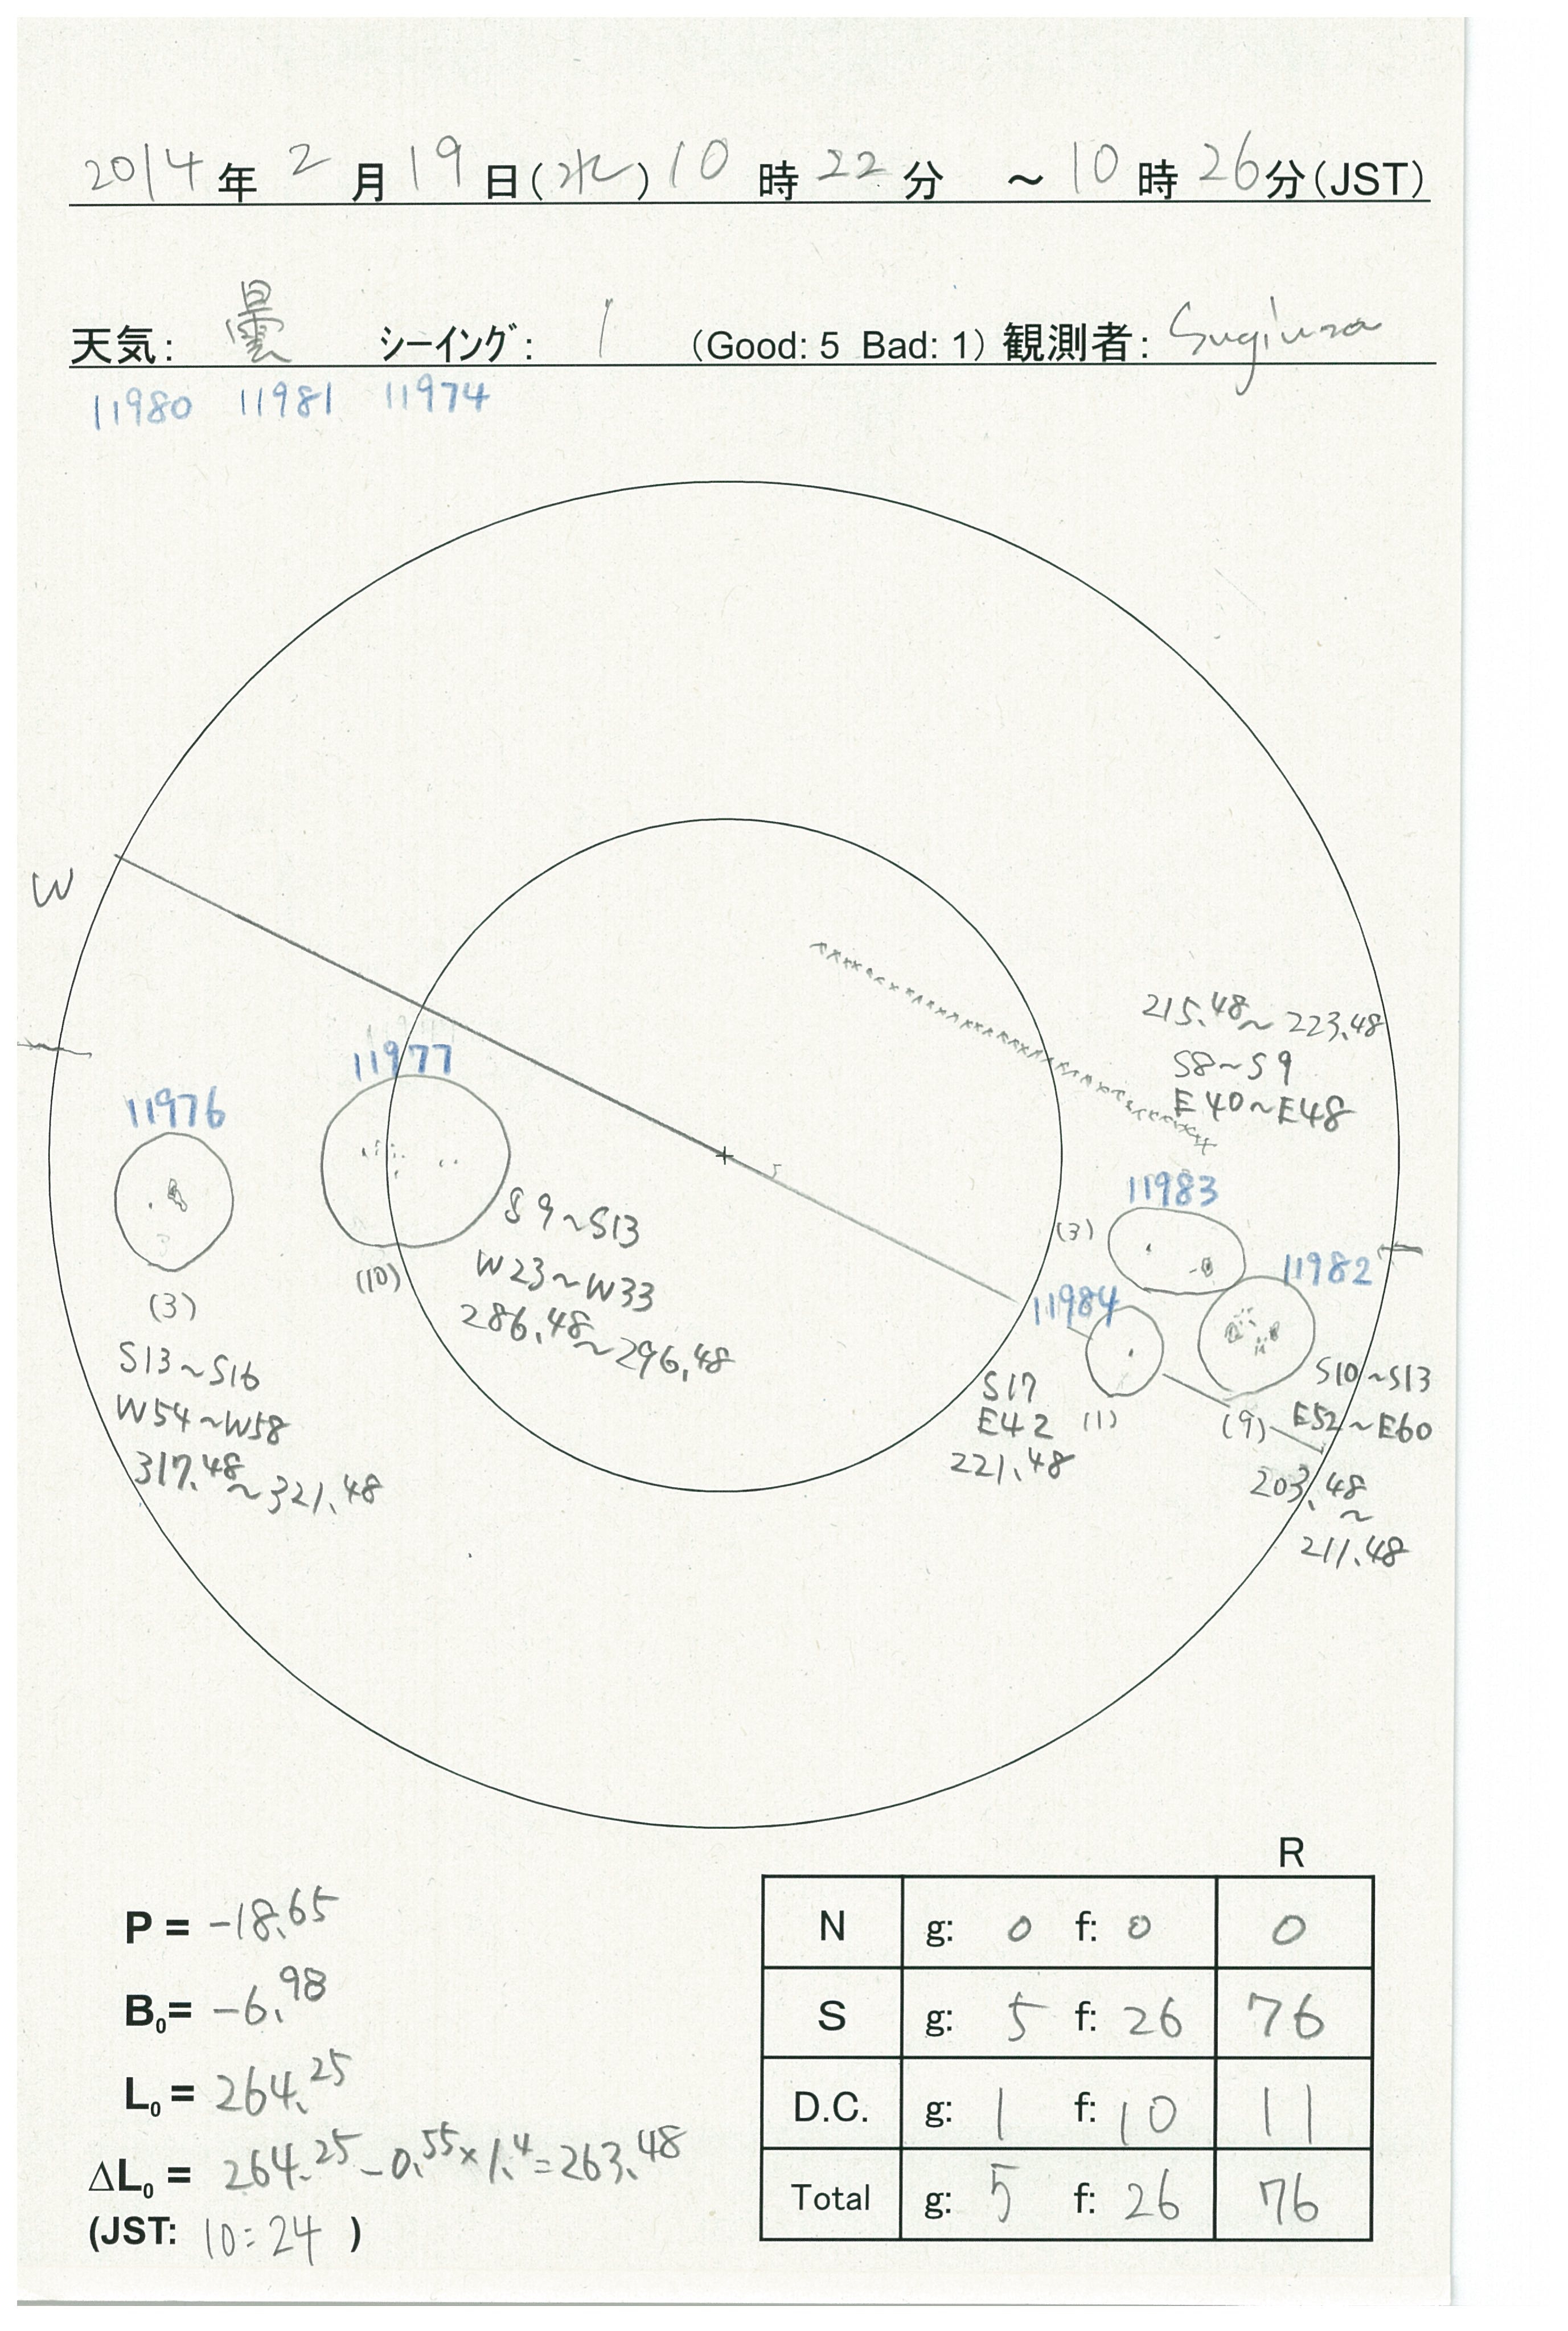 2014年 2月19日(水)10時22分 ～10時26分(JST)
天気: 曇 シーイング: 1 (Good: 5 Bad: 1) 観測者: Sugiura
11980 11981 11974
W
215.48~223.48
S8~S9
E40~E48
11977
11976
11983
(3)
S9~S13
W23~W33
286.48~296.48
(10)
11982
11984
(3)
S13~S16
W54~W58
317.48~321.48
S17
E42 (1)
221.48
S10~S13
(9) E52~E60
203.48
~
211.48
R
P = -18.65
B₀= -6.98
L₀ = 264.25
ΔL₀ = 264.25-0.55×1.4=263.48
(JST: 10:24 )
N g: 0 f: 0 0
S g: 5 f: 26 76
D.C. g: 1 f: 10 11
Total g: 5 f: 26 76